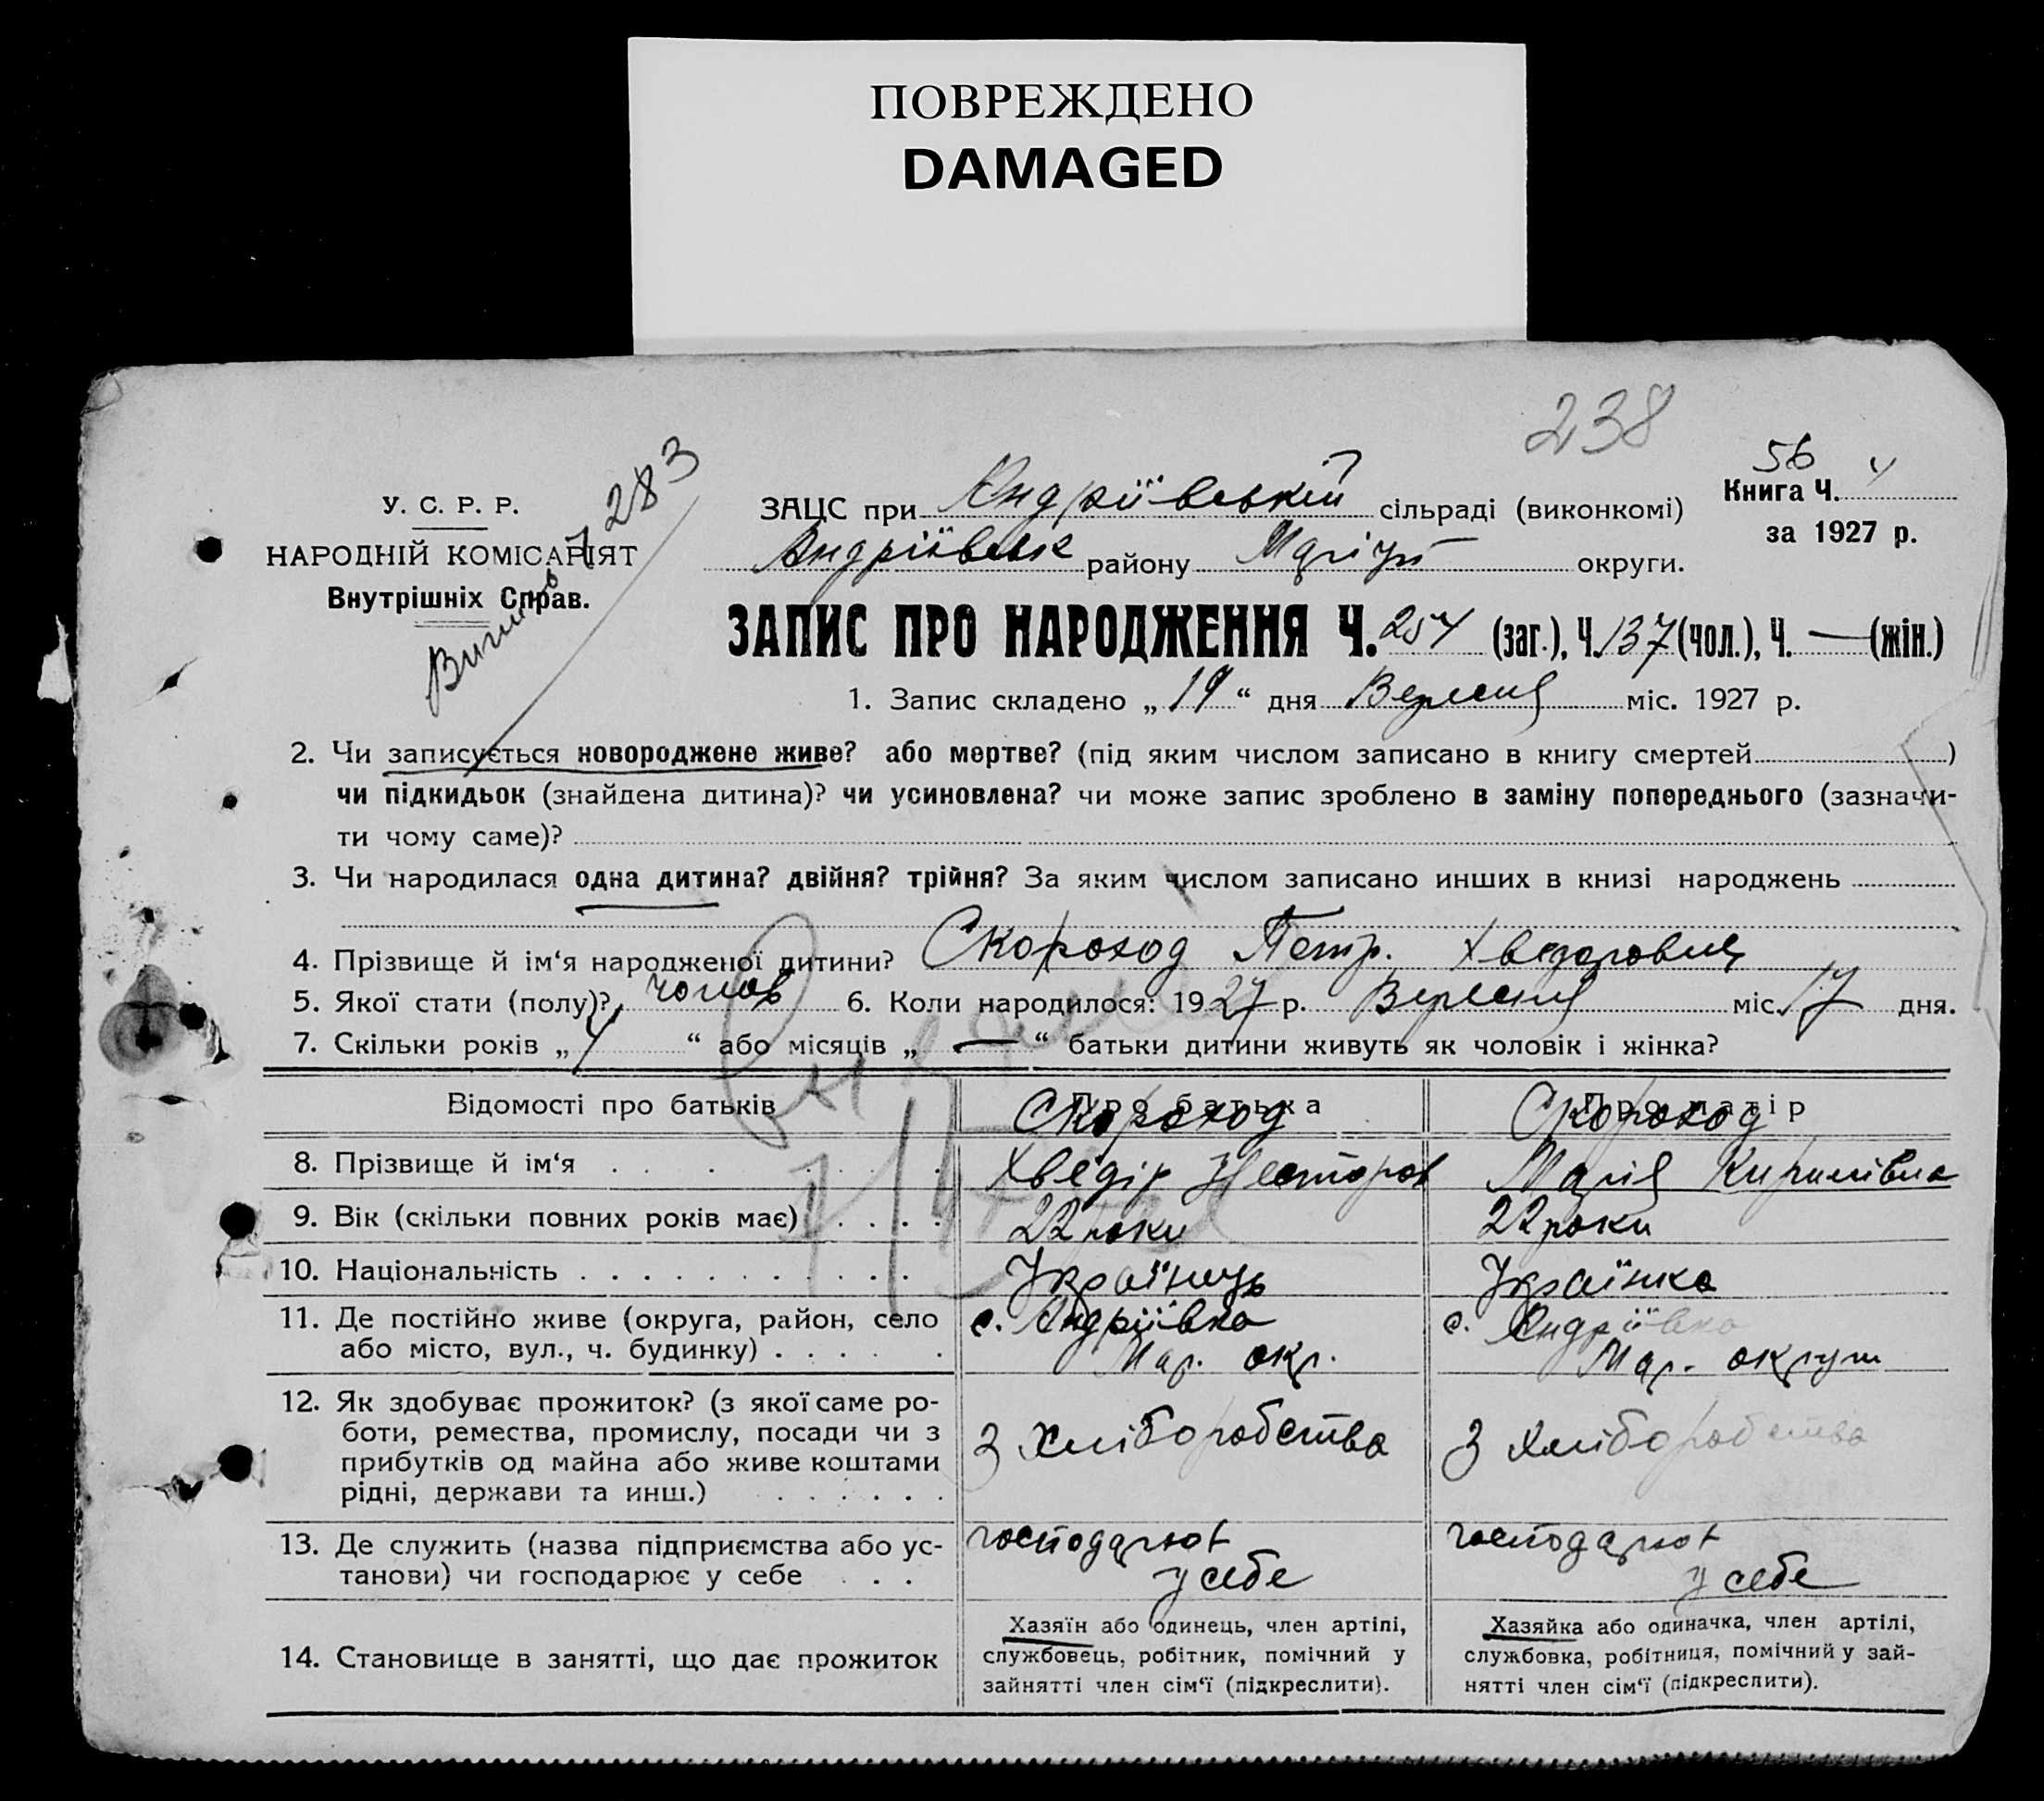 ПОВРЕЖДЕНО
DAMAGED
238
56
У. С. Р. Р.
НАРОДНІЙ КОМІСАРІЯТ
Внутрішніх Справ.
283
ЗАЦС при Андріївській сільраді (виконкомі)
Книга Ч. 4
за 1927 р.
Андріївськ району Маріуп округи.
ЗАПИС ПРО НАРОДЖЕННЯ Ч. 254 (заг.), Ч. 137 (чол.), Ч. — (жін.)
1. Запис складено „ 19 “ дня Вересня міс. 1927 р.
2. Чи записується новороджене живе? або мертве? (під яким числом записано в книгу смертей )
чи підкидьок (знайдена дитина)? чи усиновлена? чи може запис зроблено в заміну попереднього (зазначи-
ти чому саме)?
3. Чи народилася одна дитина? двійня? трійня? За яким числом записано инших в книзі народжень
4. Прізвище й ім‘я народженої дитини? Скороход Петр. Хведорович
5. Якої стати (полу)? чолов 6. Коли народилося: 1927 р. Вересня міс. 17 дня.
7. Скільки років „ 4 “ або місяців „ — “ батьки дитини живуть як чоловік і жінка?
Відомості про батьків Про батька Про матір
Скороход Скороход
8. Прізвище й ім‘я Хведір Несторов Марія Кирилівна
9. Вік (скільки повних років має) 22 роки 22 роки
10. Національність Українець Українка
11. Де постійно живе (округа, район, село с. Андріївка с. Андріївка
або місто, вул., ч. будинку) Мар. окр. Мар. округи
12. Як здобуває прожиток? (з якої саме ро-
боти, ремества, промислу, посади чи з З хліборобства З хліборобства
прибутків од майна або живе коштами
рідні, держави та инш.)
13. Де служить (назва підприємства або ус- господарют господарют
танови) чи господарює у себе у себе у себе
14. Становище в занятті, що дає прожиток
Хазяїн або одинець, член артілі,
службовець, робітник, помічний у
зайнятті член сім‘ї (підкреслити).
Хазяйка або одиначка, член артілі,
службовка, робітниця, помічний у зай-
нятті член сім‘ї (підкреслити).